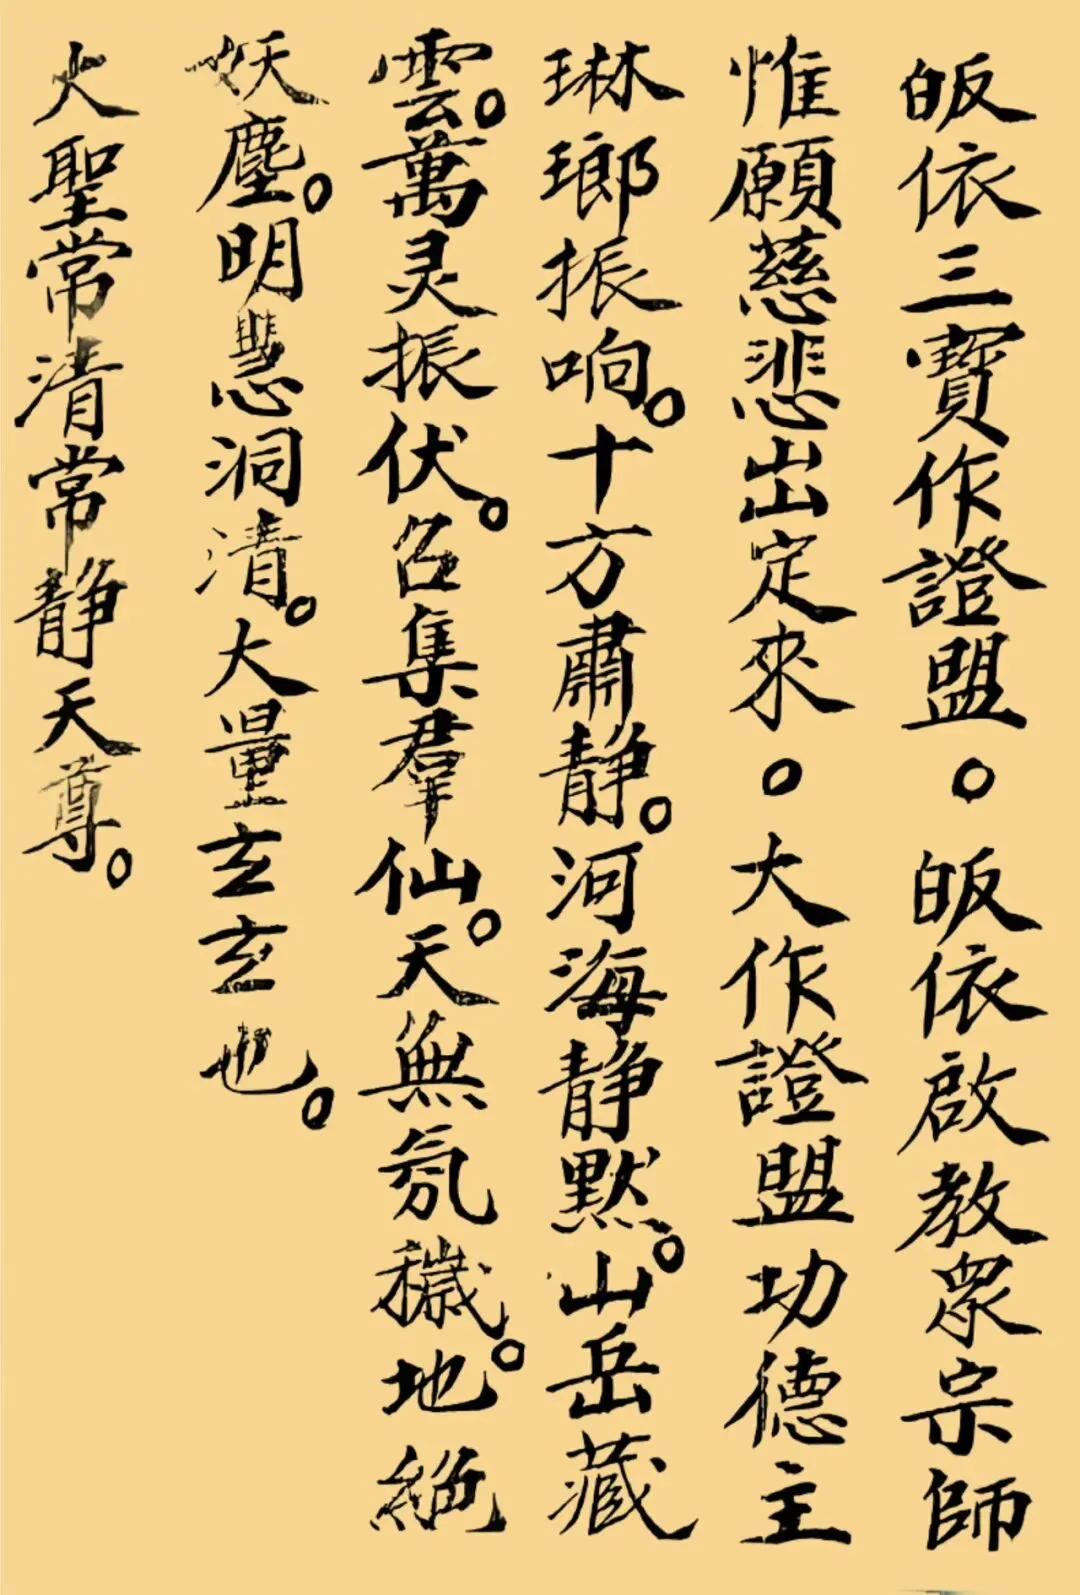 皈依三寶作證盟。皈依啟教眾宗師
惟願慈悲出定來。大作證盟功德主
琳瑯振响。十方肅静。河海静默。山岳藏
雲。萬灵振伏。召集羣仙。天無氛穢。地絕
妖塵。明慧洞清。大量玄玄也。
大聖常清常静天尊。